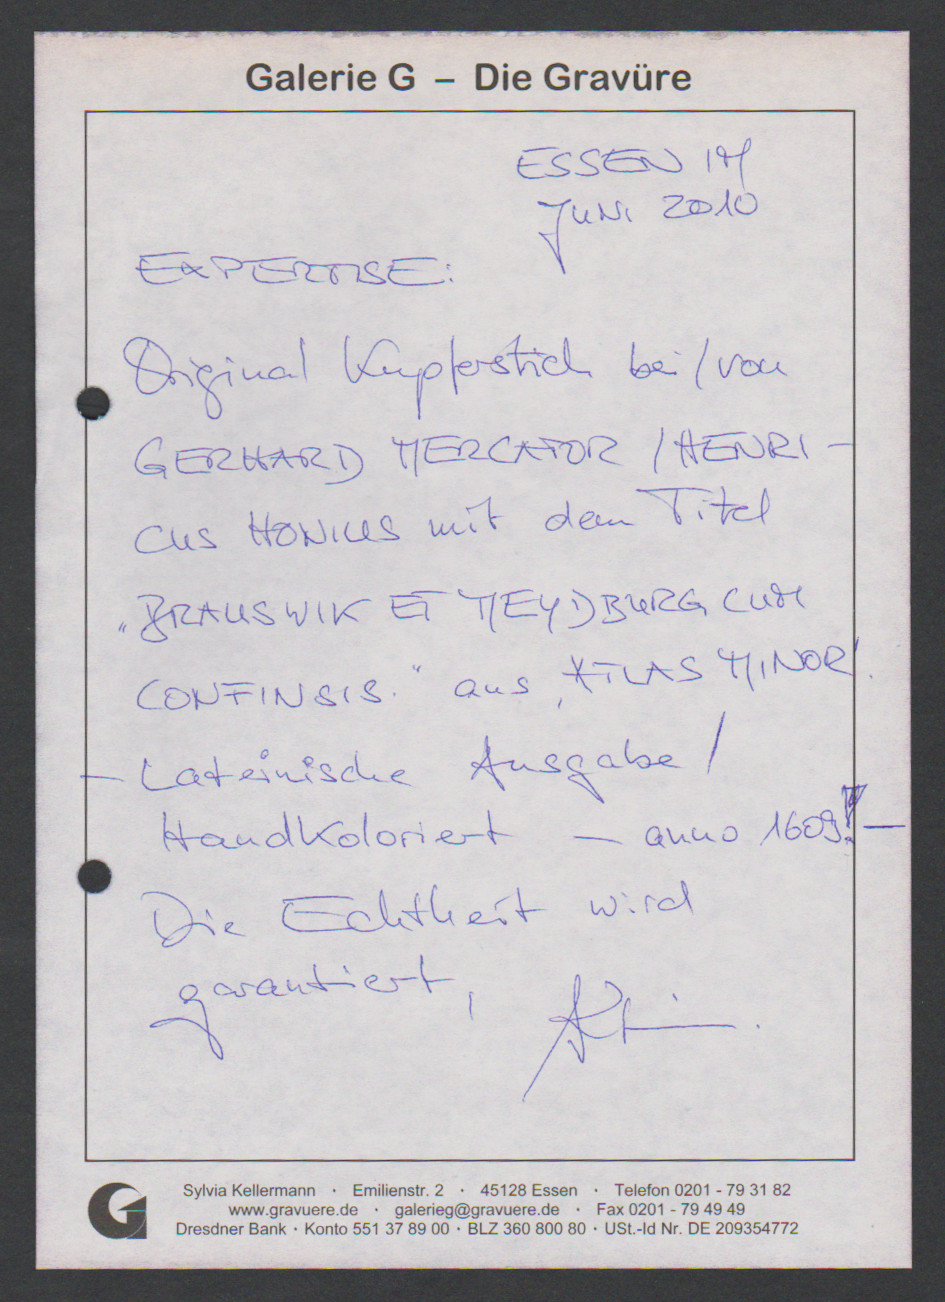 Galerie G – Die Gravüre
ESSEN IM
JUNI 2010
EXPERTISE:
Original Kupferstich bei/von
GERHARD MERCATOR / HENRI-
CUS HONIUS mit dem Titel
„BRAUSWIK ET MEYDBURG CUM
CONFINSIS.“ aus ‚ATLAS MINOR‘.
– Lateinische Ausgabe /
Handkoloriert – anno 1609! –
Die Echtheit wird
garantiert,
Sylvia Kellermann · Emilienstr. 2 · 45128 Essen · Telefon 0201 - 79 31 82
www.gravuere.de · galerieg@gravuere.de · Fax 0201 - 79 49 49
Dresdner Bank · Konto 551 37 89 00 · BLZ 360 800 80 · USt.-Id Nr. DE 209354772